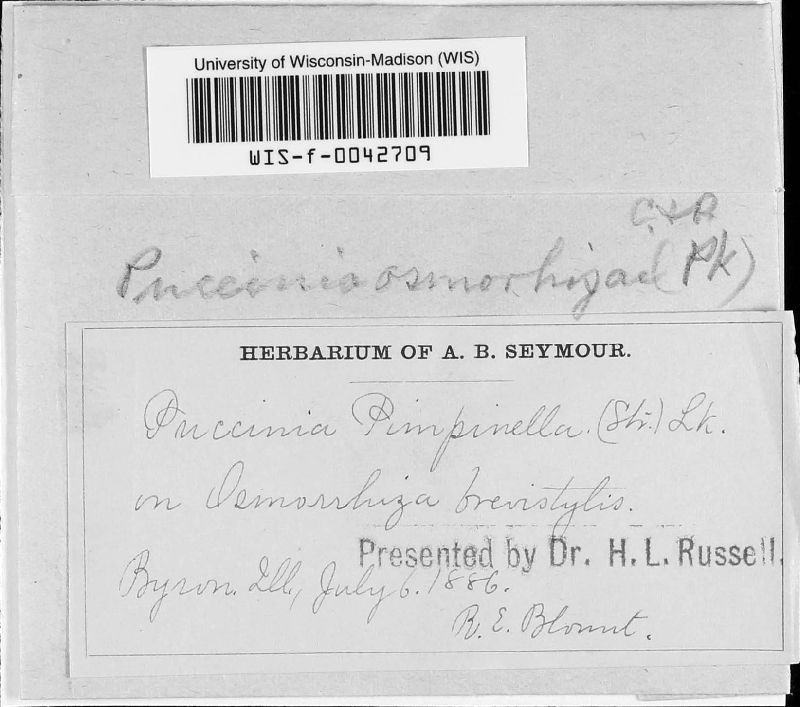 University of Wisconsin-Madison (WIS)
WIS-f-0042709
C & A
Puccinia osmorhizae (Pk)
HERBARIUM OF A. B. SEYMOUR.
Puccinia Pimpinella. (Str.) Lk.
on Osmorrhiza brevistylis.
Presented by Dr. H. L. Russell.
Byron. Ill., July 6. 1886.
R. E. Blount.